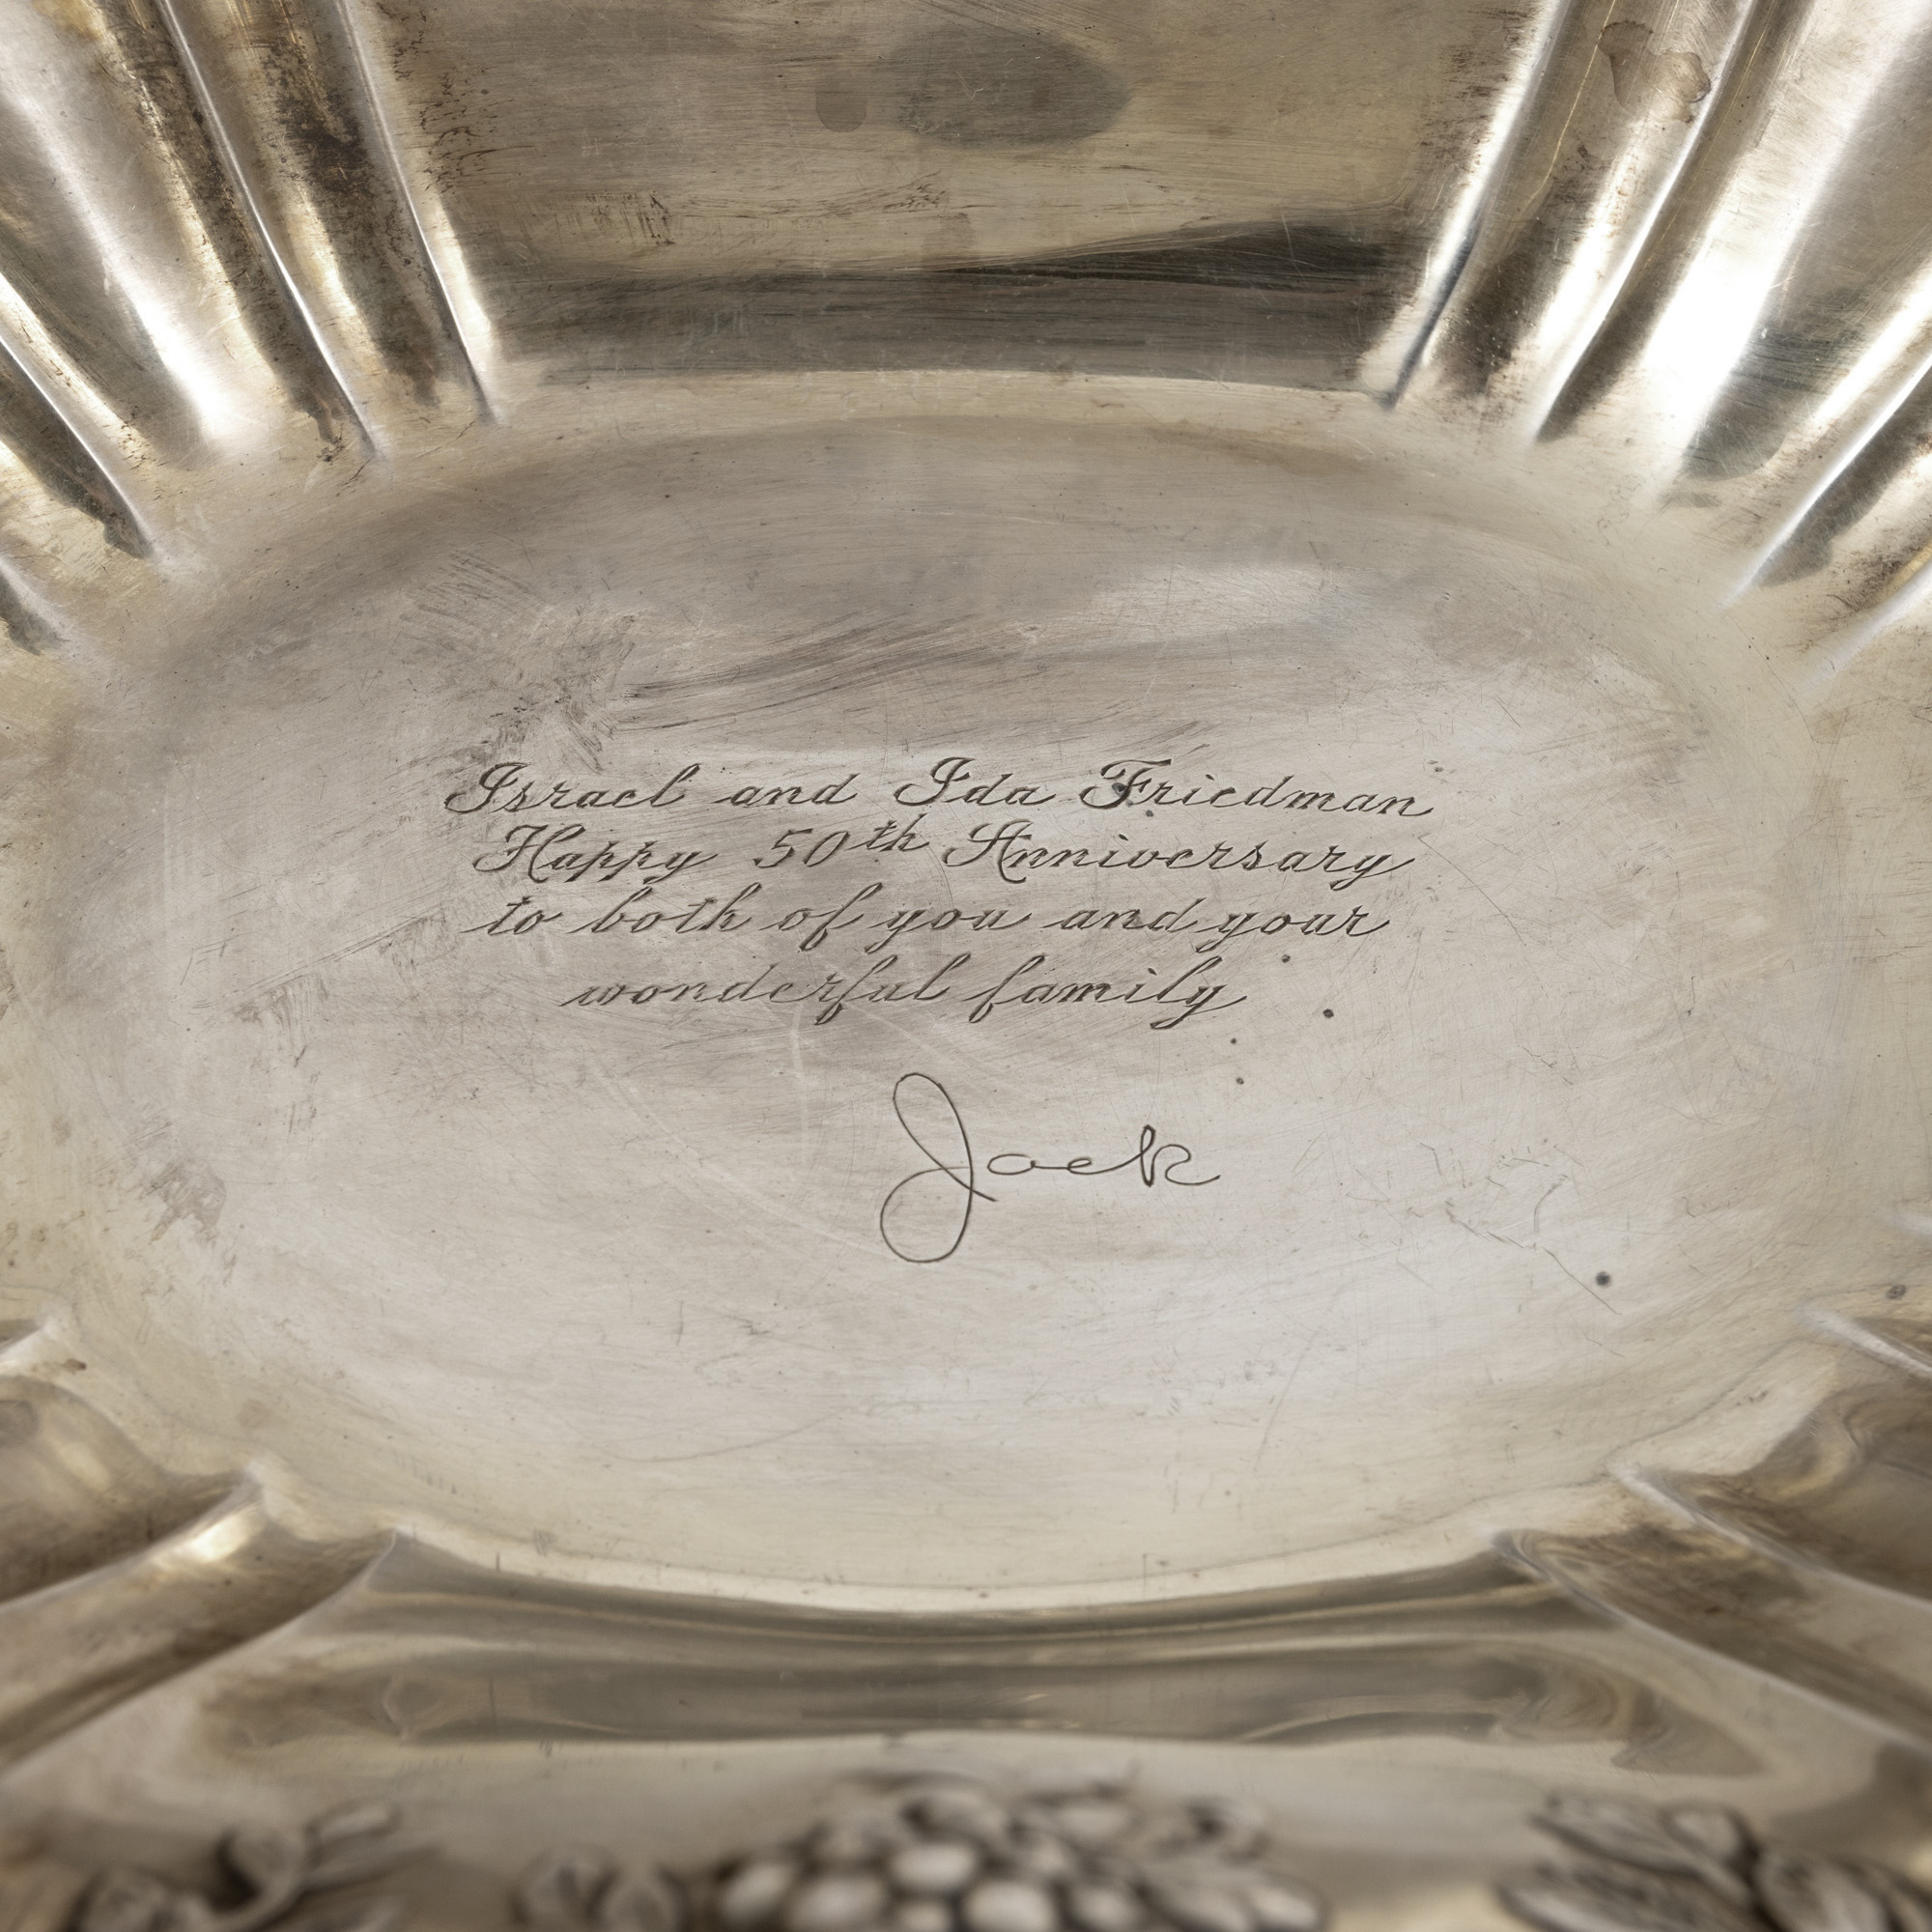 Israel and Ida Friedman
Happy 50th Anniversary
to both of you and your
wonderful family
Jack